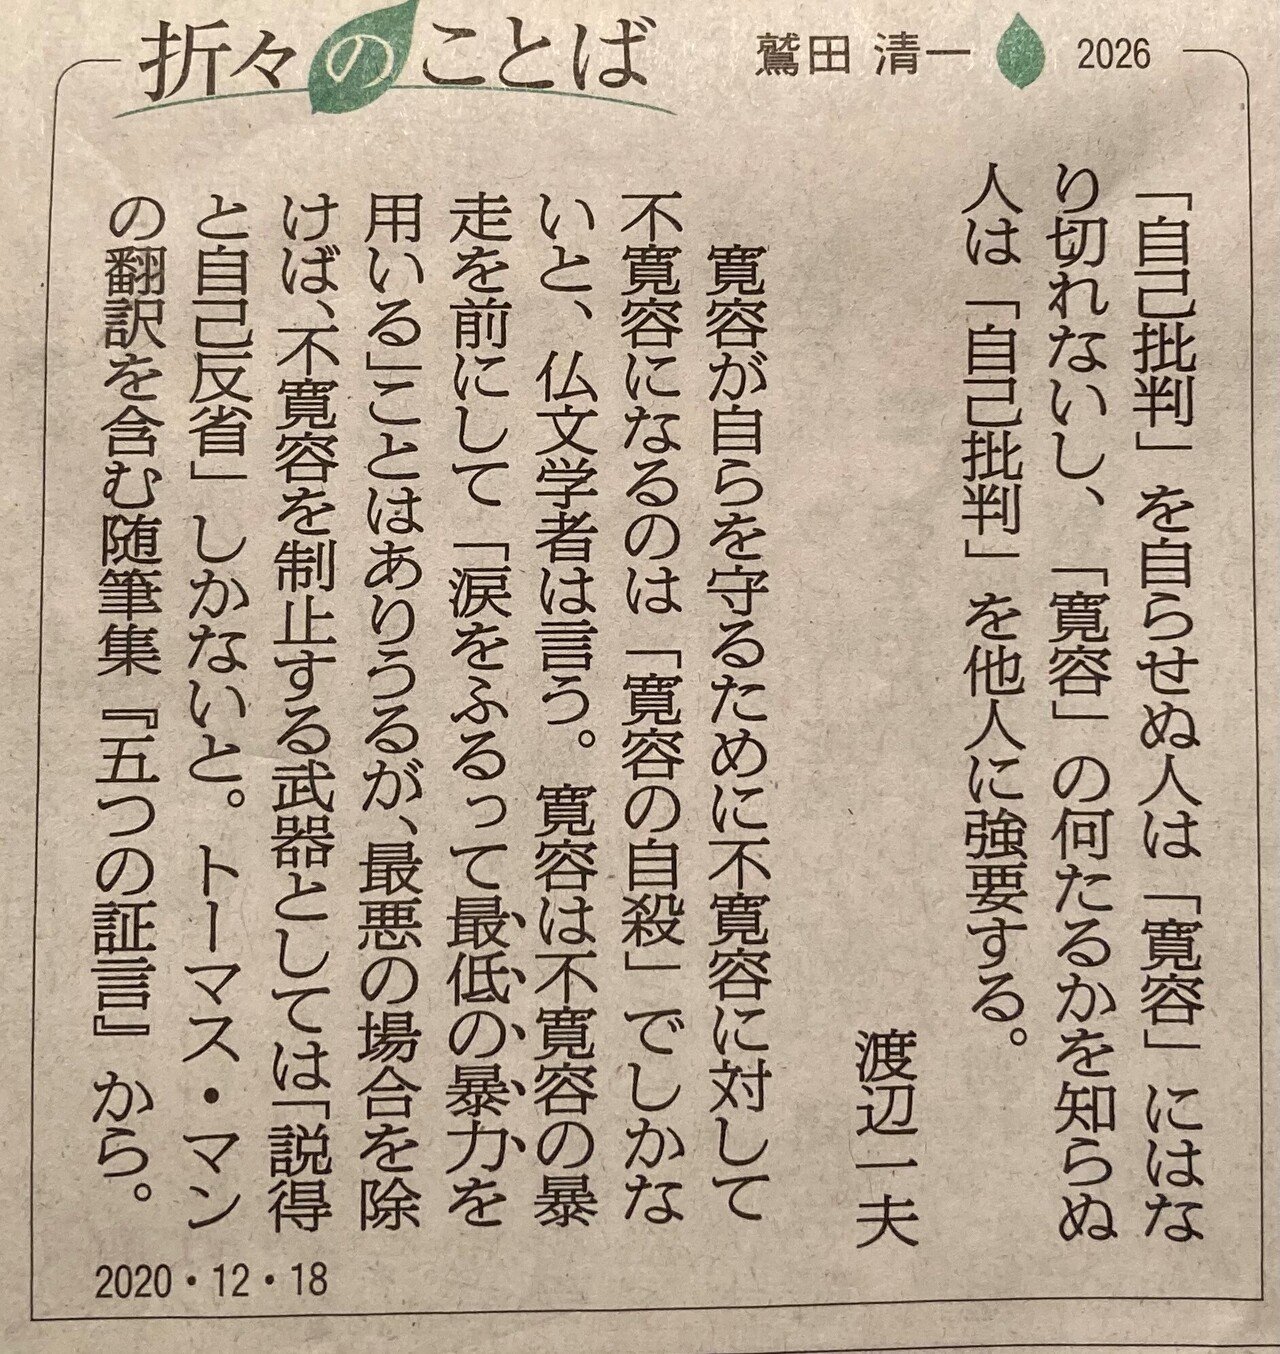 折々のことば 鷲田 清一 2026
「自己批判」を自らせぬ人は「寛容」にはな
り切れないし、「寛容」の何たるかを知らぬ
人は「自己批判」を他人に強要する。
渡辺一夫
寛容が自らを守るために不寛容に対して
不寛容になるのは「寛容の自殺」でしかな
いと、仏文学者は言う。寛容は不寛容の暴
走を前にして「涙をふるって最低の暴力を
用いる」ことはありうるが、最悪の場合を除
けば、不寛容を制止する武器としては「説得
と自己反省」しかないと。トーマス・マン
の翻訳を含む随筆集『五つの証言』から。
2020・12・18